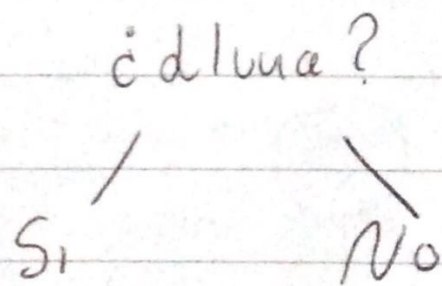 ¿dluna?
Si No